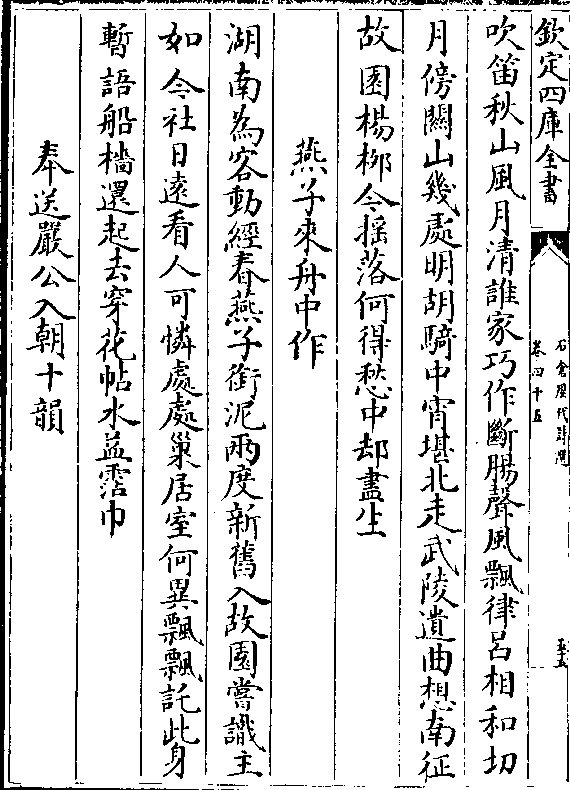 欽定四庫全書
石倉歷代詩選
卷四十五
吹笛秋山風月清誰家巧作斷腸聲風飄律呂相和切
月傍關山幾處明胡騎中宵堪北走武陵遺曲想南征
故園楊栁今揺落何得愁中却盡生
燕子來舟中作
湖南為客動經春燕子銜泥兩度新舊入故園嘗識主
如今社日逺看人可憐處處巢居室何異飄飄託此身
暫語船檣還起去穿花帖水益霑巾
奉送嚴公入朝十韻